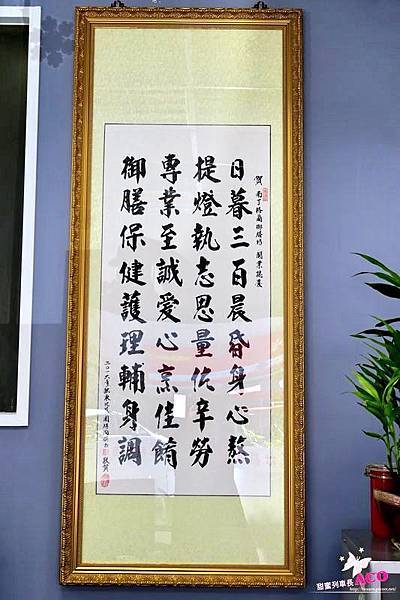 賀 南丁格爾御膳坊 開業誌慶
日暮三百晨昏身心熬
提燈執志思量仡辛勞
專業至誠愛心烹佳餚
御膳保健護理輔身調
敬賀
甜蜜列車長ACO